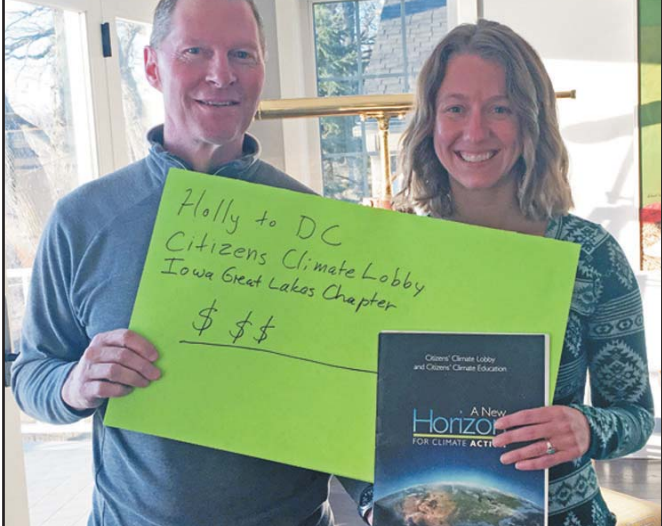 Holly to DC
Citizens Climate Lobby
Iowa Great Lakes Chapter
$ $$
Citizens' Climate Lobby
and Citizens' Climate Education
A New
Horizo
FOR CLIMATE ACTI